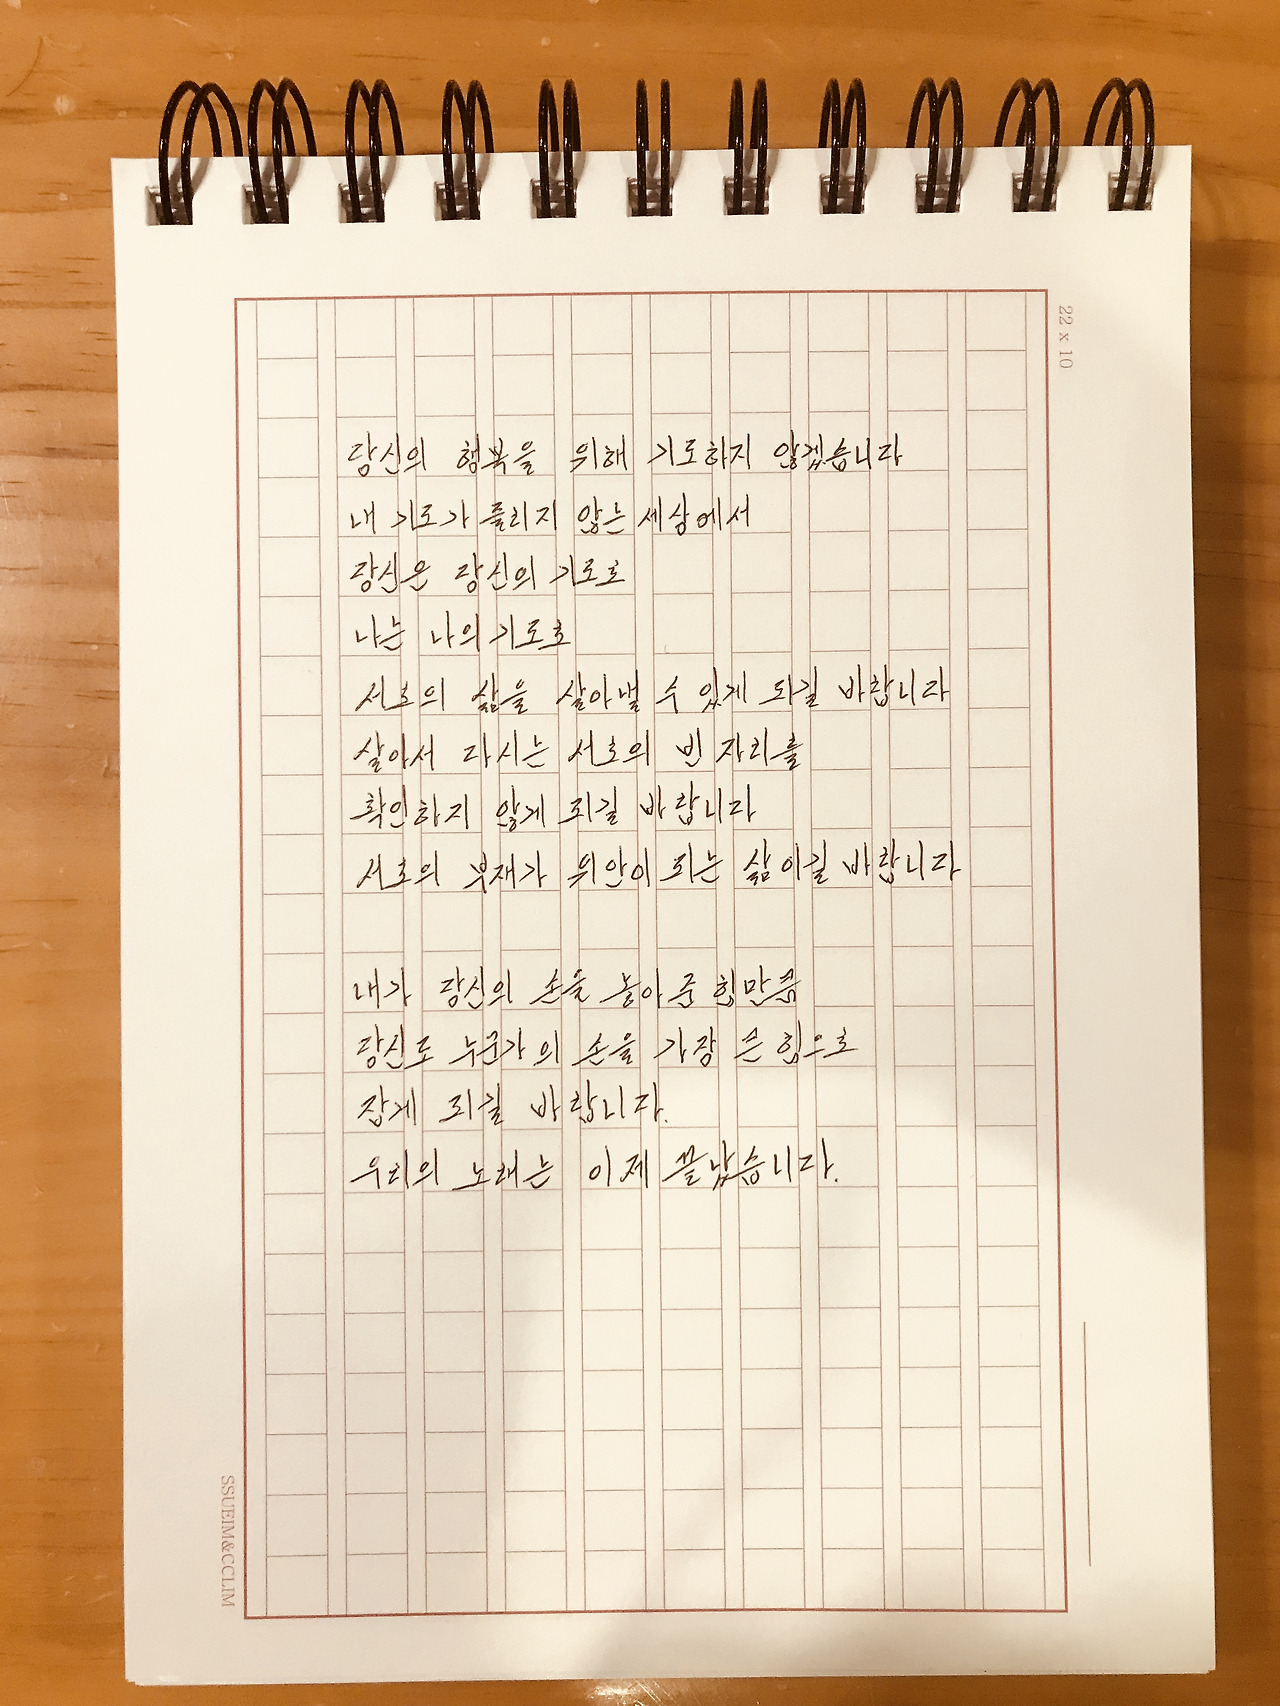 22 x 10
당신의 행복을 위해 기도하지 않겠습니다
내 기도가 들리지 않는 세상에서
당신은 당신의 기도로
나는 나의 기도로
서로의 삶을 살아낼 수 있게 되길 바랍니다
살아서 다시는 서로의 빈 자리를
확인하지 않게 되길 바랍니다
서로의 부재가 위안이 되는 삶이길 바랍니다
내가 당신의 손을 놓아 준 힘만큼
당신도 누군가의 손을 가장 큰 힘으로
잡게 되길 바랍니다.
우리의 노래는 이제 끝났습니다.
SSUEIM&CCLIM